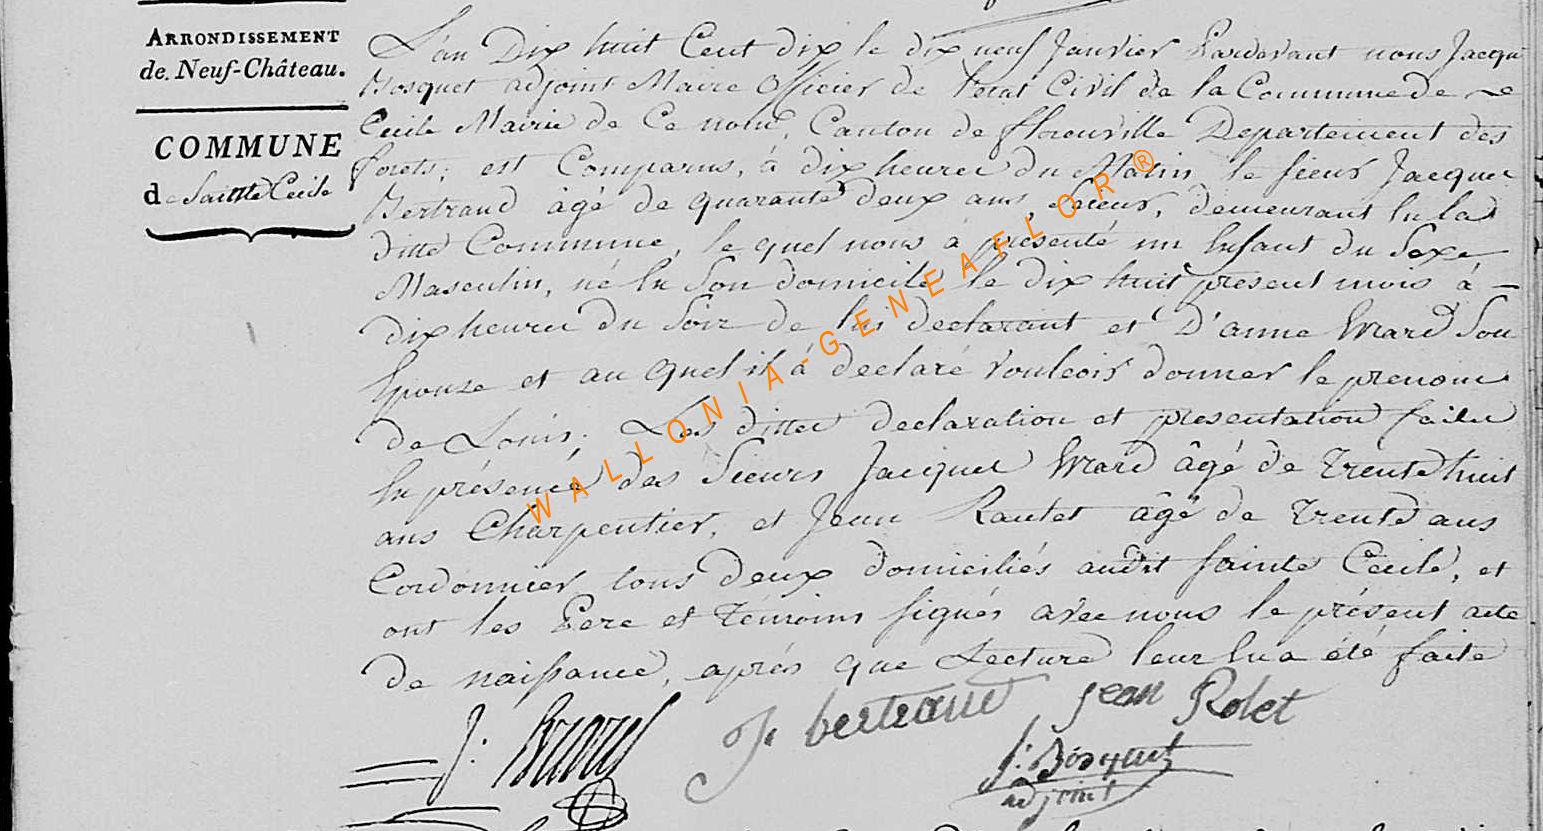 ARRONDISSEMENT
de Neuf-Château.
COMMUNE
de Sainte Cecile
L'an Dix huit Cent dix le dix neuf Janvier Pardevant nous Jacque
Bosquet adjoint Maire Officier de l'etat Civil de la Commune de Ste
Cecile Mairie de Ce nom, Canton de florenville Departement des
forets; est Comparus, à dix heures du Matin le sieur Jacques
Bertrand âgé de quarante deux ans, Scieur, demeurant En la
ditte Commune, le quel nous à présenté un Enfant du Sexe
Masculin, né En Son domicile le dix huit present mois à
dix heures du Soir de lui declarant et D'anne Evrard Son
Epouse et au quel il à declaré vouloir donner le prenom
de Louis; Les dittes declaration et presentation faites
En présence des Sieurs Jacques Evrard âgé de Trente huit
ans Charpentier, et Jean Raulet âgé de Trente ans
Cordonnier tous deux domiciliés audit Sainte Cecile, et
ont les Pere et Témoins signés avec nous le présent acte
de naissance, après que Lecture leur En a été faite
J: Evrard J: bertrand jean Rolet
J: Bosquet
adjoint
WALLONIA-GENEAFLOR®